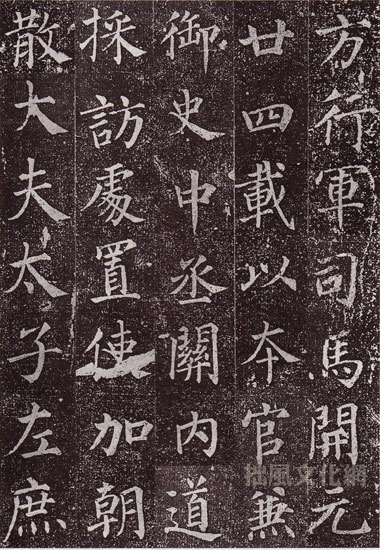 方行軍司馬開元
廿四載以夲官兼
御史中丞關内道
採訪處置使加朝
散大夫太子左庶
拙風文化網